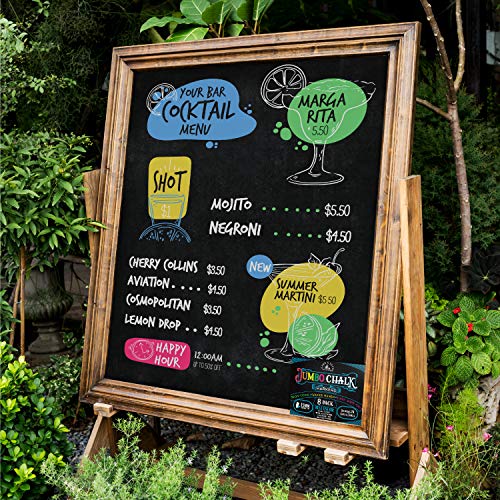 YOUR BAR
COCKTAIL
MENU
MARGA
RITA
5.50
SHOT
$1
MOJITO ...... $5.50
NEGRONI ..... $4.50
CHERRY COLLINS $3.50
AVIATION .... $4.50
COSMOPOLITAN $3.50
LEMON DROP .. $4.50
NEW
SUMMER
MARTINI $5.50
HAPPY
HOUR
12:00AM
UP TO 50% OFF
JUMBO CHALK
8 PACK